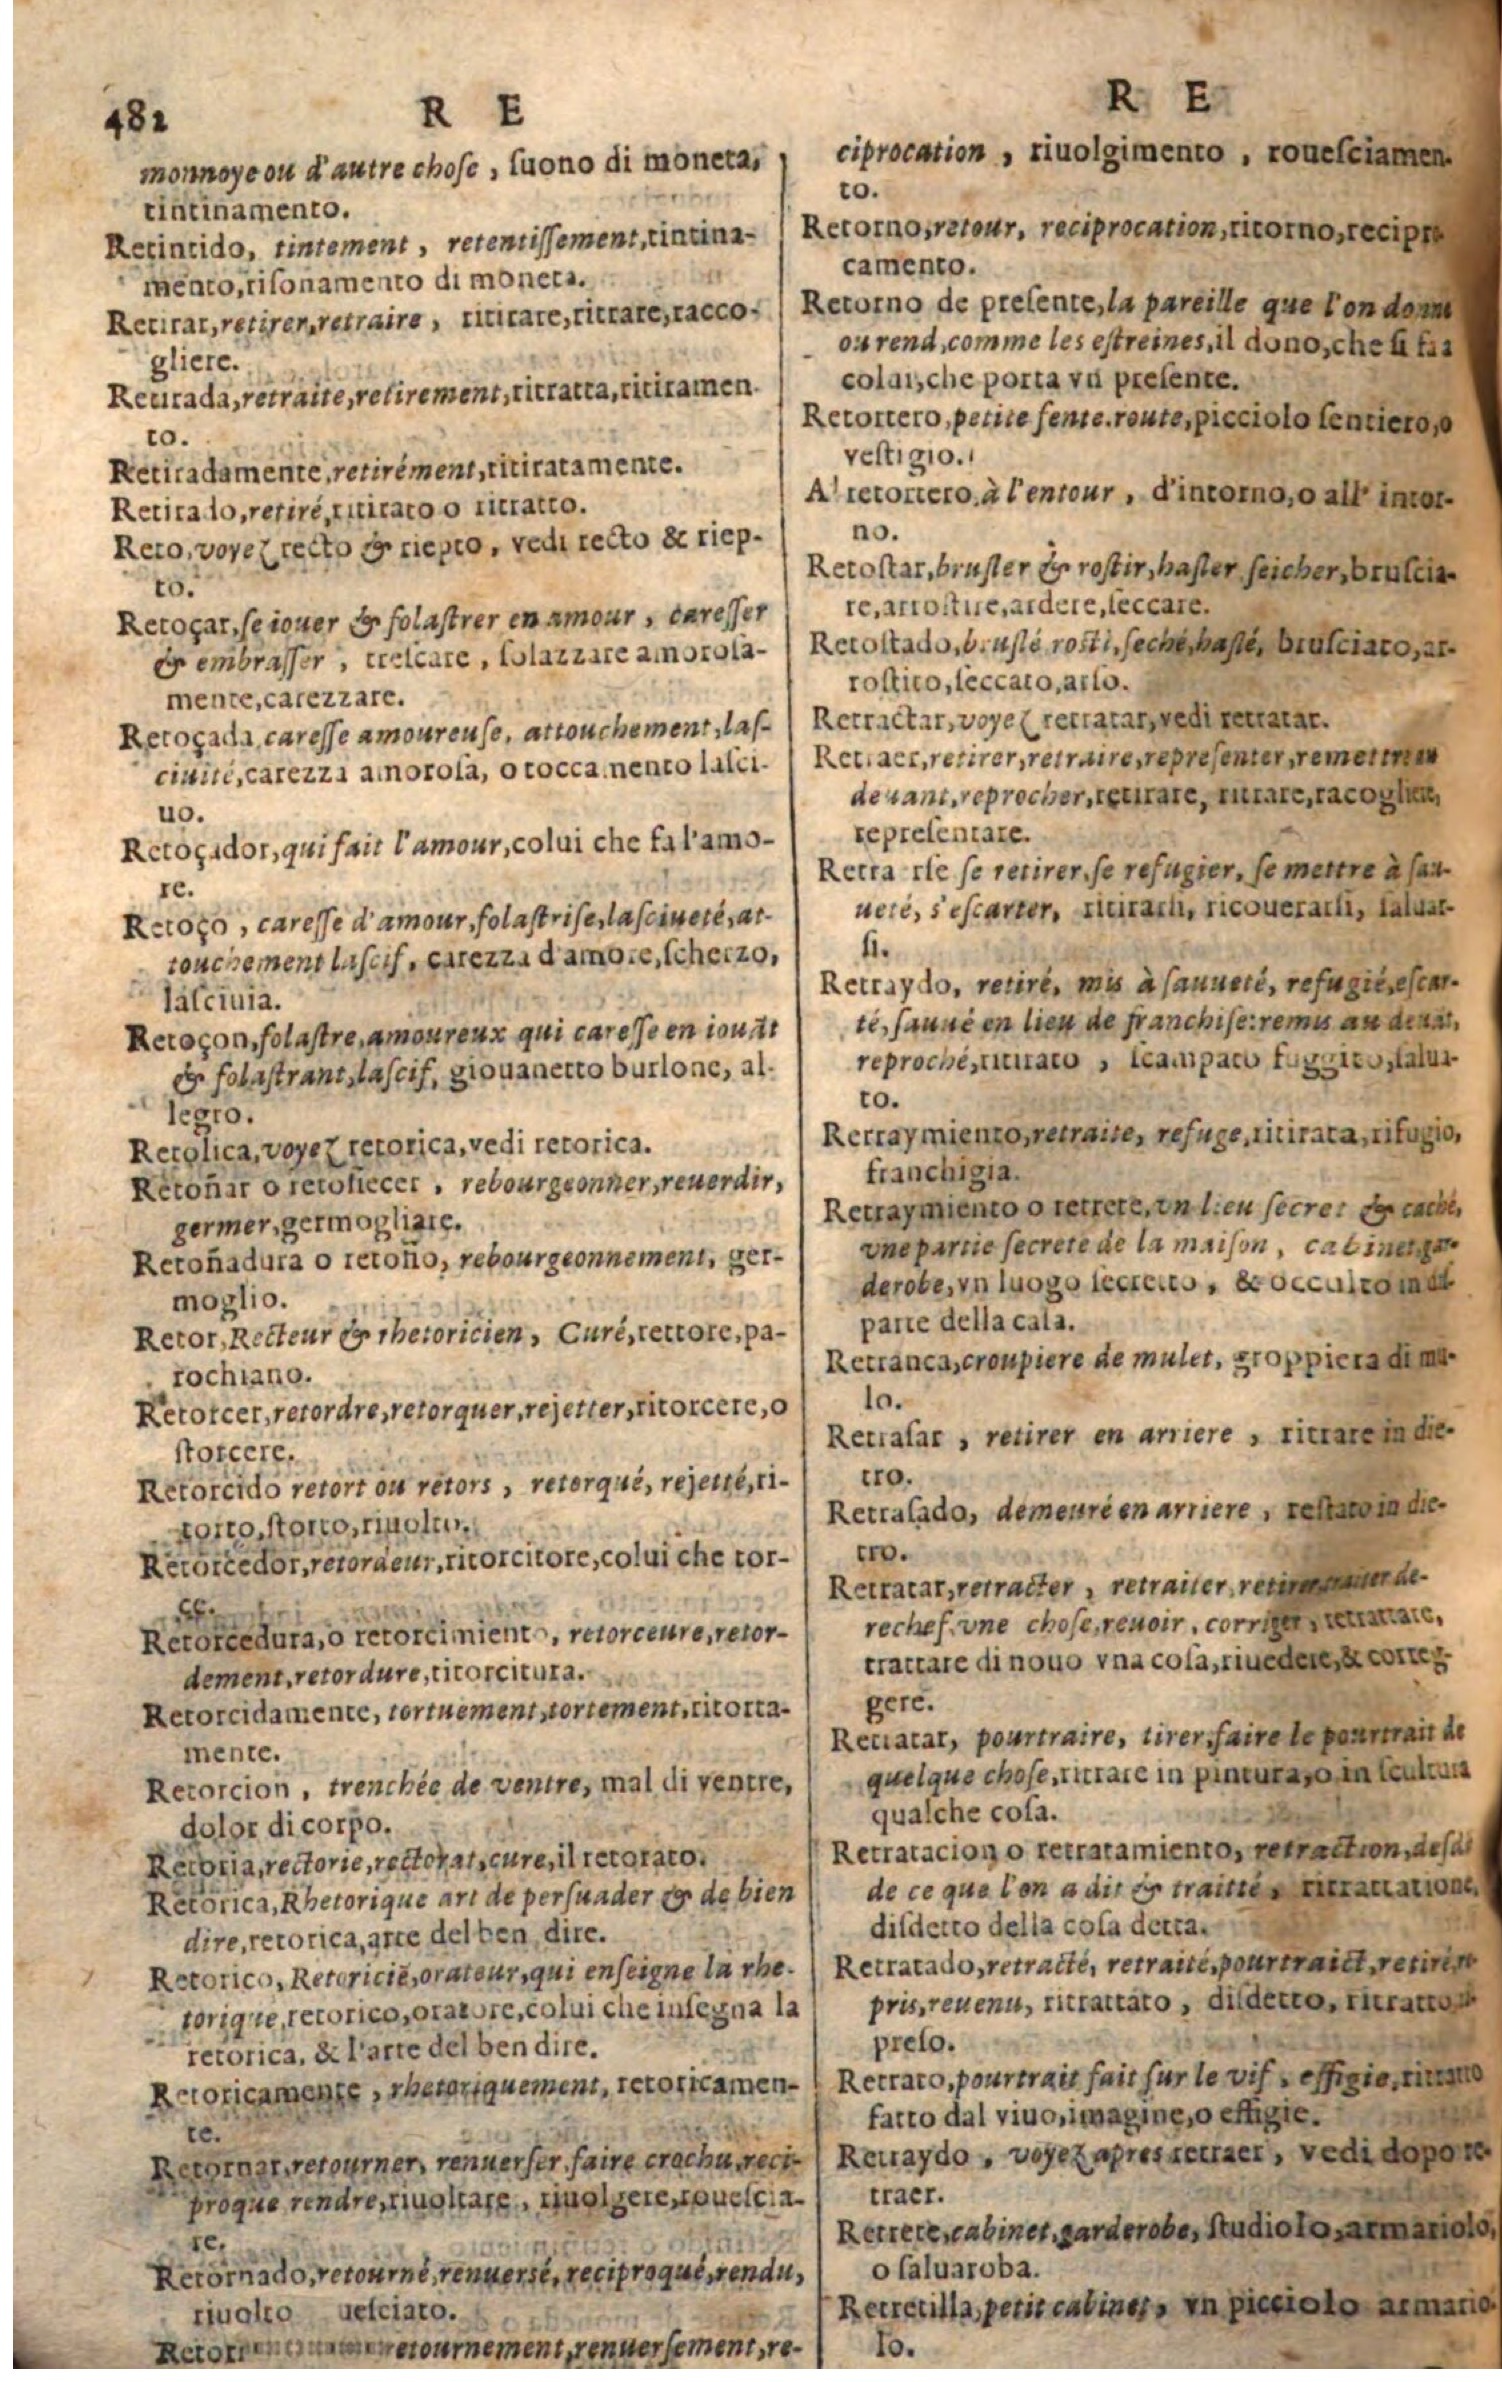 482
R E
monnoye ou d'autre chose, ſuono di moneta,
tintinamento.
Retintido, tintement, retentiſſement, tintina-
mento, riſonamento di moneta.
Retirar, retirer, retraire, ritirare, ritrare, racco-
gliere.
Retirada, retraite, retirement, ritratta, ritiramen
to.
Retiradamente, retirément, ritiratamente.
Retirado, retiré, ritirato o ritratto.
Reto, voyez recto & riepto, vedi recto & riep-
to.
Retoçar, ſe iouer & folaſtrer en amour, careſſer
& embraſſer, treſcare, ſolazzare amoroſa-
mente, carezzare.
Retoçada careſſe amoureuſe, attouchement, laſ-
ciuité, carezza amoroſa, o toccamento laſci-
uo.
Retoçador, qui fait l'amour, colui che fa l'amo-
re.
Retoço, careſſe d'amour, folaſtriſe, laſciueté, at-
touchement laſcif, carezza d'amore, ſcherzo,
laſciuia.
Retoçon, folaſtre, amoureux qui careſſe en iouāt
& folaſtrant, laſcif, giouanetto burlone, al-
legro.
Retolica, voyez retorica, vedi retorica.
Retoñar o retoñecer, rebourgeonner, reuerdir,
germer, germogliare.
Retoñadura o retoño, rebourgeonnement, ger-
moglio.
Retor, Recteur & rhetoricien, Curé, rettore, pa-
rochiano.
Retorcer, retordre, retorquer, rejetter, ritorcere, o
ſtorcere.
Retorcido retort ou retors, retorqué, rejetté, ri-
torto, ſtorto, riuolto.
Retorcedor, retordeur, ritorcitore, colui che tor-
ce.
Retorcedura, o retorcimiento, retorceure, retor-
dement, retordure, ritorcitura.
Retorcidamente, tortuement, tortement, ritorta-
mente.
Retorcion, trenchée de ventre, mal di ventre,
dolor di corpo.
Retoria, rectorie, rectorat, cure, il retorato.
Retorica, Rhetorique art de perſuader & de bien
dire, retorica, arte del ben dire.
Retorico, Retoriciē, orateur, qui enſeigne la rhe-
torique, retorico, oratore, colui che inſegna la
retorica, & l'arte del ben dire.
Retoricamente, rhetoriquement, retoricamen-
te.
Retornar, retourner, renuerſer, faire crochu, reci-
proque rendre, riuoltare, riuolgere,roueſcia-
re.
Retornado, retourné, renuersé, reciproqué, rendu,
riuolto ueſciato.
Retor retournement, renuerſement, re-
R E
ciprocation, riuolgimento, roueſciamen-
to.
Retorno, retour, reciprocation, ritorno, recipro
camento.
Retorno de preſente, la pareille que l'on donne
ou rend, comme les eſtreines, il dono, che ſi fa a
colui, che porta vn preſente.
Retortero, petite ſente. route, picciolo ſentiero, o
veſtigio.
Al retortero, à l'entour, d'intorno, o all' intor-
no.
Retoſtar, bruſler & roſtir, haſler ſeicher, bruſcia-
re, arroſtire, ardere, ſeccare.
Retoſtado, bruſlé roſti, ſeché, haſlé, bruſciato, ar-
roſtito, ſeccato, arſo.
Retractar, voyez retratar, vedi retratar.
Retraer, retirer, retraire, repreſenter, remettre au
deuant, reprocher, retirare, ritrare, racogliere,
repreſentare.
Retra rſe ſe retirer, ſe refugier, ſe mettre à ſau-
ueté, s'eſcarter, ritirarſi, ricouerarſi, ſaluar-
ſi.
Retraydo, retiré, mis à ſauueté, refugié, eſcar-
té, ſauué en lieu de franchiſe: remis au deuāt,
reproché, ritirato, ſcampato fuggito, ſalua-
to.
Retraymiento, retraite, refuge, ritirata, rifugio,
franchigia.
Retraymiento o retrete, vn lieu ſecret & caché,
vne partie ſecrete de la maiſon, cabinet, gar-
derobe, vn luogo ſecreto, & occulto in
parte della caſa.
Retranca, croupiere de mulet, groppiera di mu-
lo.
Retraſar, retirer en arriere, ritrare in die-
tro.
Retraſado, demeuré en arriere, reſtato in die-
tro.
Retratar, retracter, retraiter, retirer, traiter de-
rechef, vne choſe, reuoir, corriger, retrattare,
trattare di nouo vna coſa, riuedere, & correg-
gere.
Retratar, pourtraire, tirer, faire le pourtrait de
quelque choſe, ritrare in pintura, o in ſcultura
qualche coſa.
Retratacion o retratamiento, retraction, deſdit
de ce que l'on a dit & traitté, ritrattatione,
diſdetto della coſa detta.
Retratado, retracté, retraité, pourtraict, retiré, re-
pris, reuenu, ritrattato, diſdetto, ritratto
preſo.
Retrato, pourtrait fait ſur le vif, effigie, ritratto
fatto dal viuo, imagine, o effigie.
Retraydo, voyez apres retraer, vedi dopo re-
traer.
Retrete, cabinet, garderobe, ſtudiolo, armariolo,
o ſaluaroba.
Retretilla, petit cabinet, vn picciolo armario-
lo.